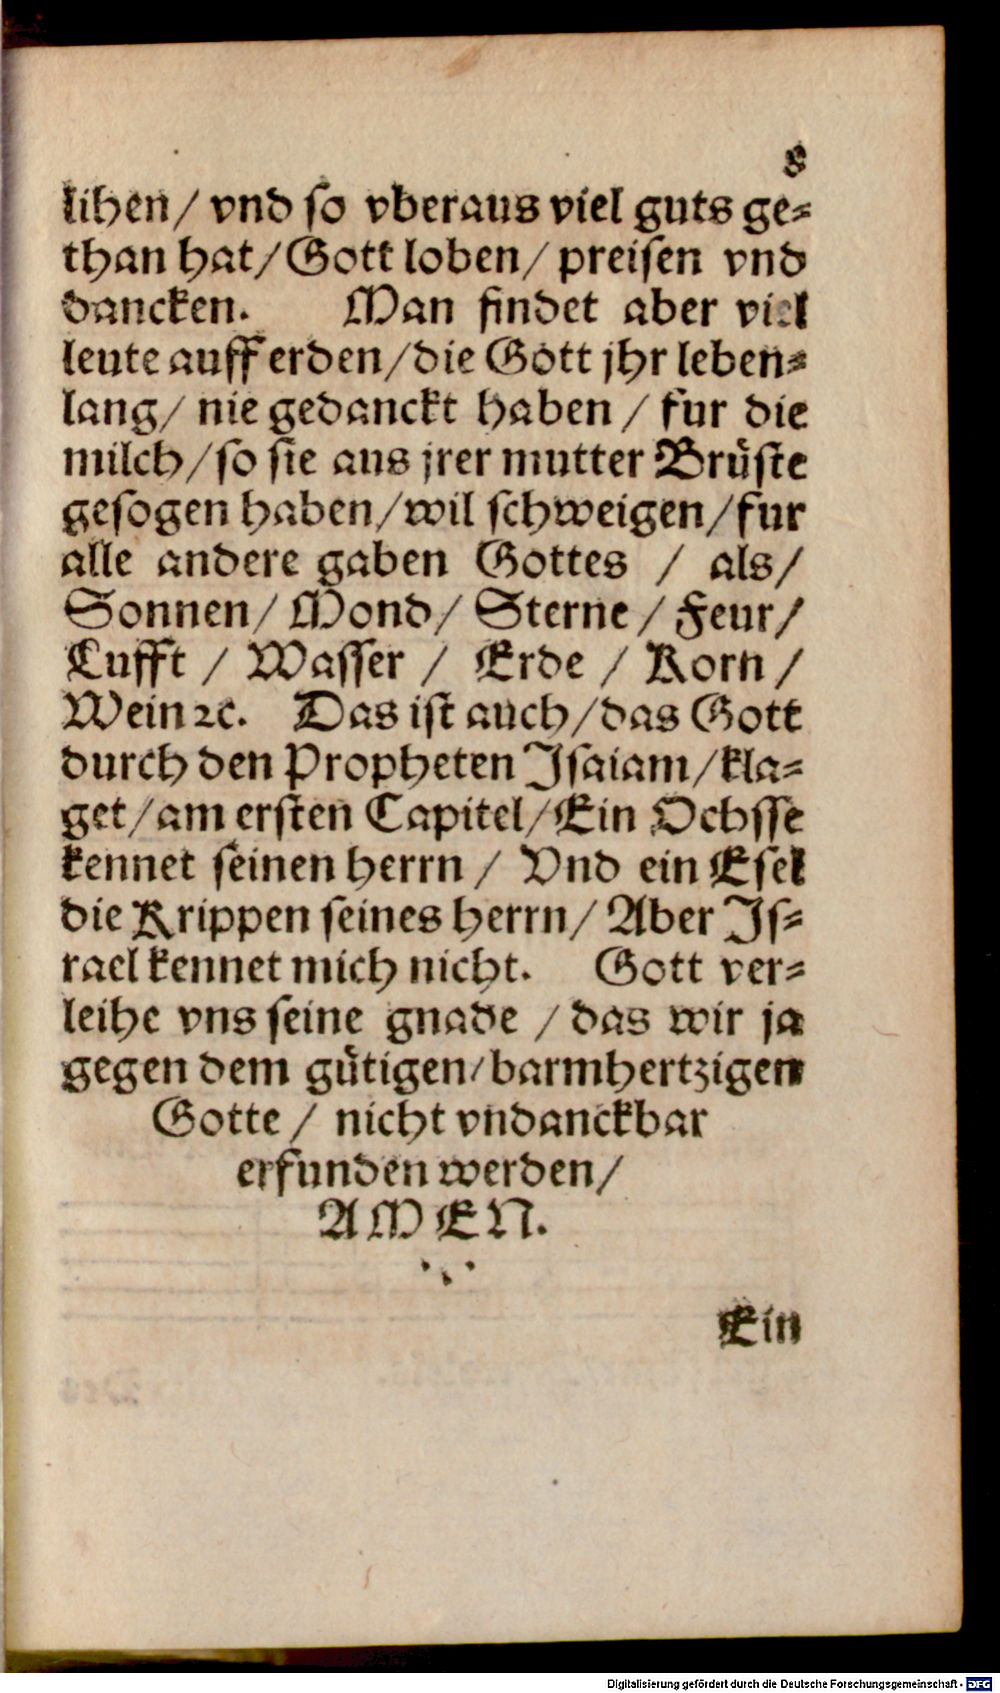 8
lihen/ vnd so vberaus viel guts ge⸗
than hat/ Gott loben/ preisen vnd
dancken. Man findet aber viel
leute auff erden/ die Gott jhr leben⸗
lang/ nie gedanckt haben / fur die
milch/ so sie aus jrer mutter Brüste
gesogen haben/ wil schweigen/ fur
alle andere gaben Gottes / als/
Sonnen/ Mond/ Sterne / Feur/
Lufft / Wasser / Erde / Korn /
Wein ꝛc. Das ist auch/ das Gott
durch den Propheten Isaiam/ kla⸗
get/ am ersten Capitel/ Ein Ochsse
kennet seinen herrn / Vnd ein Esel
die Krippen seines herrn/ Aber Is⸗
rael kennet mich nicht. Gott ver⸗
leihe vns seine gnade / das wir ja
gegen dem gütigen/ barmhertzigen
Gotte / nicht vndanckbar
erfunden werden/
AMEN.
Ein
Digitalisierung gefördert durch die Deutsche Forschungsgemeinschaft - DFG